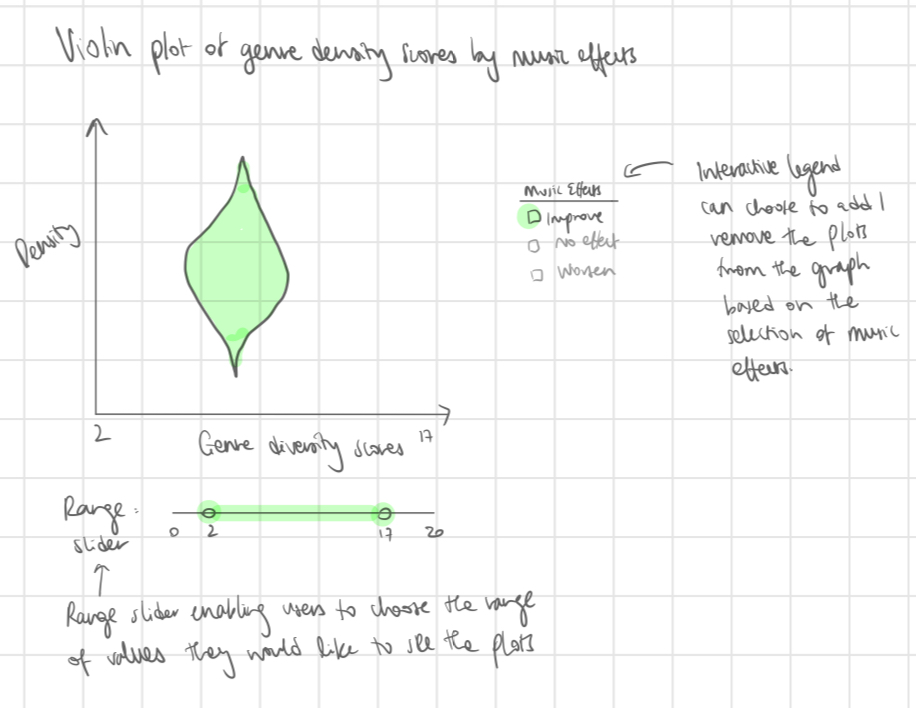 Violin plot of genre density scores by music effects
Density
2
17
Genre diversity scores
Music Effects
Improve
No effect
Worsen
Interactive legend
can choose to add /
remove the plots
from the graph
based on the
selection of music
effects.
Range :
slider
0
2
17
20
Range slider enabling users to choose the range
of values they would like to see the plots